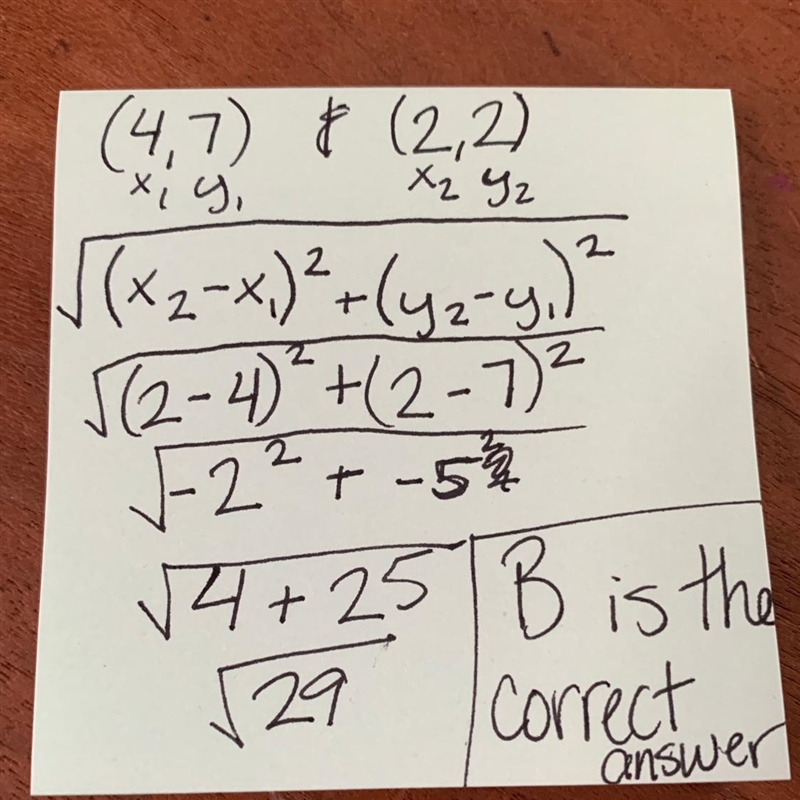 (4,7) & (2,2)
x₁ y₁ x₂ y₂
√(x₂-x₁)² + (y₂-y₁)²
√(2-4)² + (2-7)²
√-2² + -5²
√4 + 25
√29
B is the
correct
answer